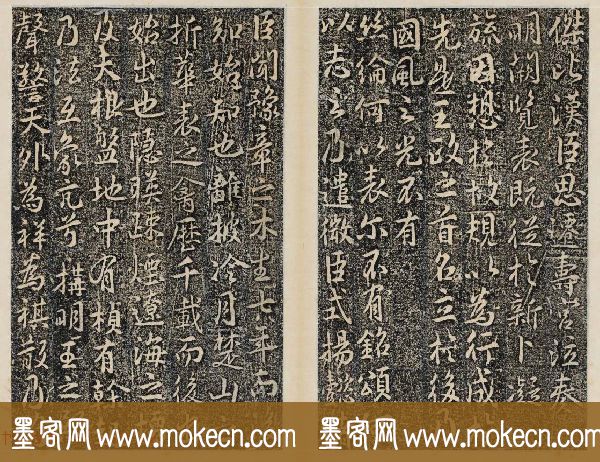 傑比漢臣思遷壽善泣奏
明闢覽表既從於新卜凝
旒因想於故規以為行成
先是王政之首名立於後乃
國風之光不有
絲綸何以表尔不有銘頌
以志之乃遣微臣式揚懿
臣聞豫章之木生七年而
知始知也離披冷月楚山
折華表之禽歷千載而後
始出也隱暎疎煙遼海之
及夫根盤地中有楨有幹
乃法互象瓦兮構明王之
聲警天外為祥為祺散乃
墨客网 www.mokecn.com 墨客网 www.mokecn.com